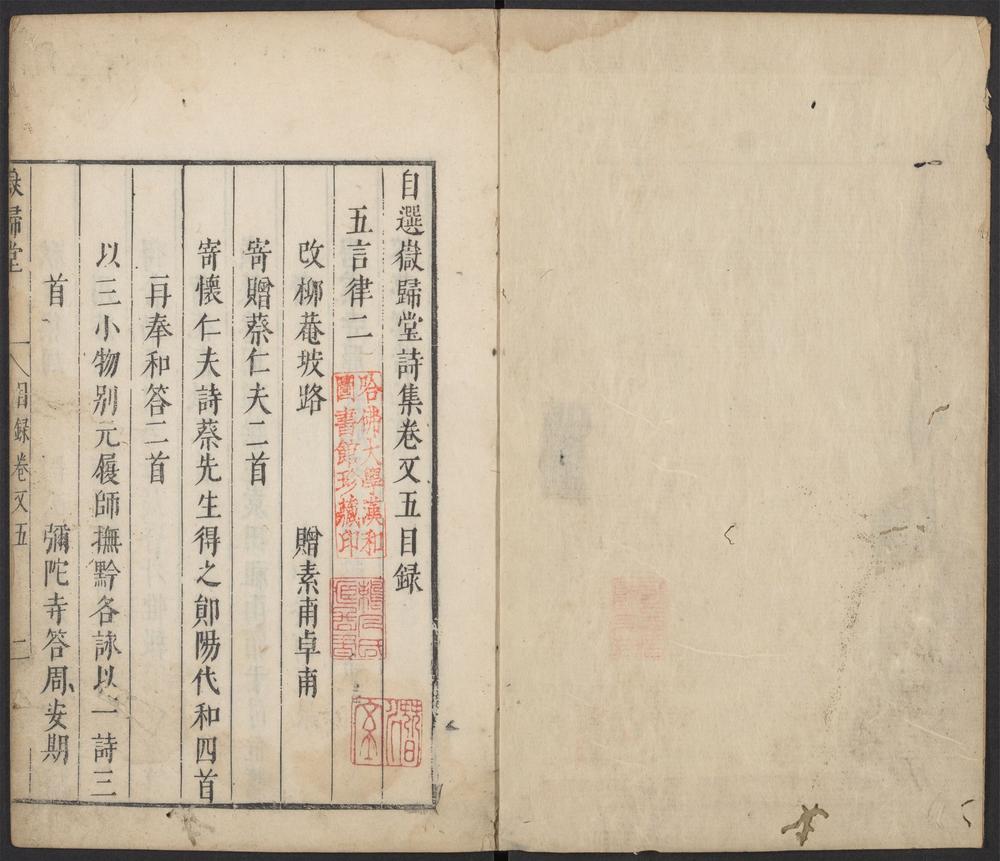 自選嶽歸堂詩集卷文五目録
五言律二
改柳菴坡路　贈素甫卓甫
寄贈蔡仁夫二首
寄懷仁夫詩蔡先生得之鄖陽代和四首
再奉和答二首
以三小物别元履師撫黔各詠以一詩三
首　彌陀寺答周安期
嶽歸堂　目録卷文五　一
哈佛大學漢和
圖書館珍藏印